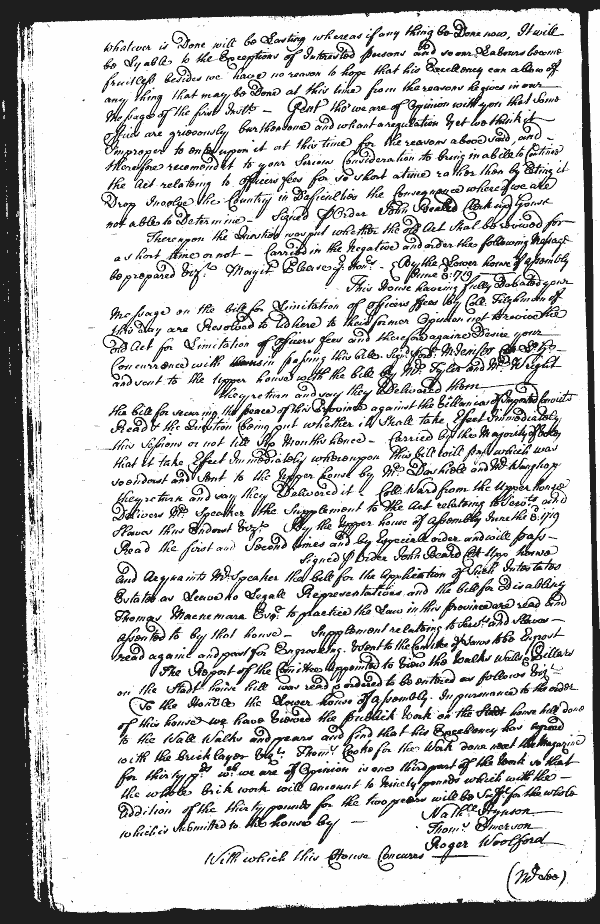 whatever is Done will be Lasting whereas if any thing be Done now, It will
be Lyable to the Exceptions of Interested persons and so our Labours become
fruitless besides we have no reason to hope that his Excellency can allow of
any thing that may be Done at this time from the reasons he gives in our
message of the first Inst. - Gent tho' we are of Opinion with you that Some
ffees are grievously burthensome and want a regulation yet we think it
Improper to enter upon it at this time for the reasons above said, and -
therefore recommend to your Serious Consideration to bring in a bill to Continue
the Act relateing to officers ffees for so short a time rather than by Letting it
Drop Involve the Country in Difficulties the Consequence whereof we are
not able to Determine - Signed P Order John Beall Clerk upp house
Thereupon the Question was put whether the old Act Shall be revived for
a short time or not - Carried in the Negative and order the following message
be prepared Vizt. May it Please yr. Honrs. - By the Lower house of Assembly
June 6: 1719
This House haveing fully Debated your
message on the bill for Limitation of officers ffees by Coll. Tilghman of
this day are Resolved to adhere to their former Opinion not to revive the
old Act for Limitation of officers fees and therefore againe Desire your
Concurrence with them in passing this bill. Signd
and sent to the upper house with the bill by Mr. Tyler and Mr. Wright
they return and say they Delivered them
the bill for securing the peace of this Province against the Villanies of Imported Convicts
Read & the Question being put whether it Shall take Effect Immediately
this Sessions or not till Six Months hence - Carried by the Majority of Votes
that it take Effect Immediately whereupon this bill will pass which was
so endorst and Sent to the upper house by Mr. Dashield and Mr. Vaughan
they return and say they Delivered it. Coll. Ward from the upper house
Delivers Mr. Speaker the Supplement to the Act relateing to Servts. and
Slaves thus Endorst Vizt. By the upper house of Assembly June the 6. 1719
Read the first and Second times and by Especiall order and will pass -
Signed P Order John Beall Cl Upp house
and Acquaints Mr. Speaker the bill for the Application of Such Intestates
Estates as Leave no Legall Representatives and the bill for Disabling
Thomas Macnemara Esqr. to practice the Law in this province are read and
assented to by that house - Supplement relateing to Servts. and Slaves -
read againe and past for Engrossing. & sent to the Comittee of Laws to be Engrost
The Report of the Comittee appointed to View the Walks Walls & Pillars
on the Stadt house hill was read & ordered to be entered as follows Vizt.
To the Honble. the Lower house of Assembly. In pursuance to the order
of this house we have Viewed the publick work on the Stadt house hill done
to the Wall Walks and pears and find that his Excellency has agreed
with the brick layer Vizt. Thoms. Cooke for the Work done next the Magazine
for thirty pds. wch. we are of Opinion is one third part of the work so that
the whole brick work will amount to Ninety pounds which with the -
addition of the thirty pounds for the two pears will be Sufft. for the whole
which is Submitted to the house by -
Nathl. Hynson
Thoms. Emerson
Roger Woolford
With which this House Concurrs